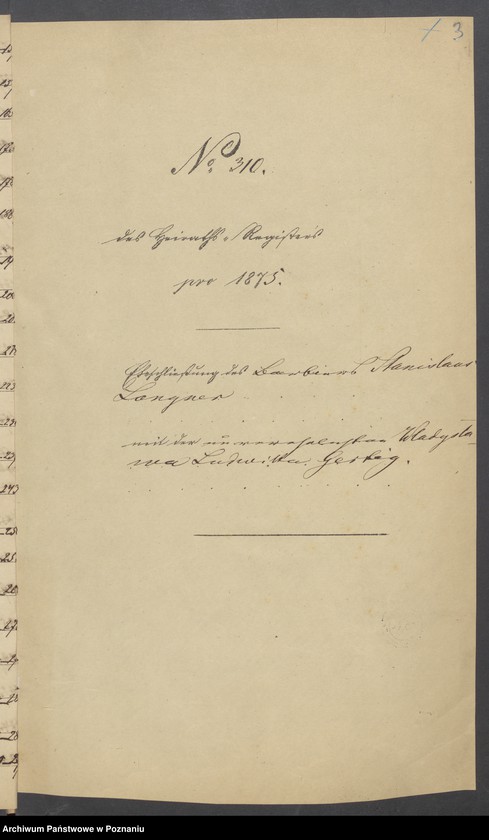 3
No. 310.
des Heiraths-Registers
pro 1875.
Eheschließung des Barbiers Stanislaus
Langner
mit der unverehelichten Wladysla-
wa Ludwika Gertig.
Archiwum Państwowe w Poznaniu